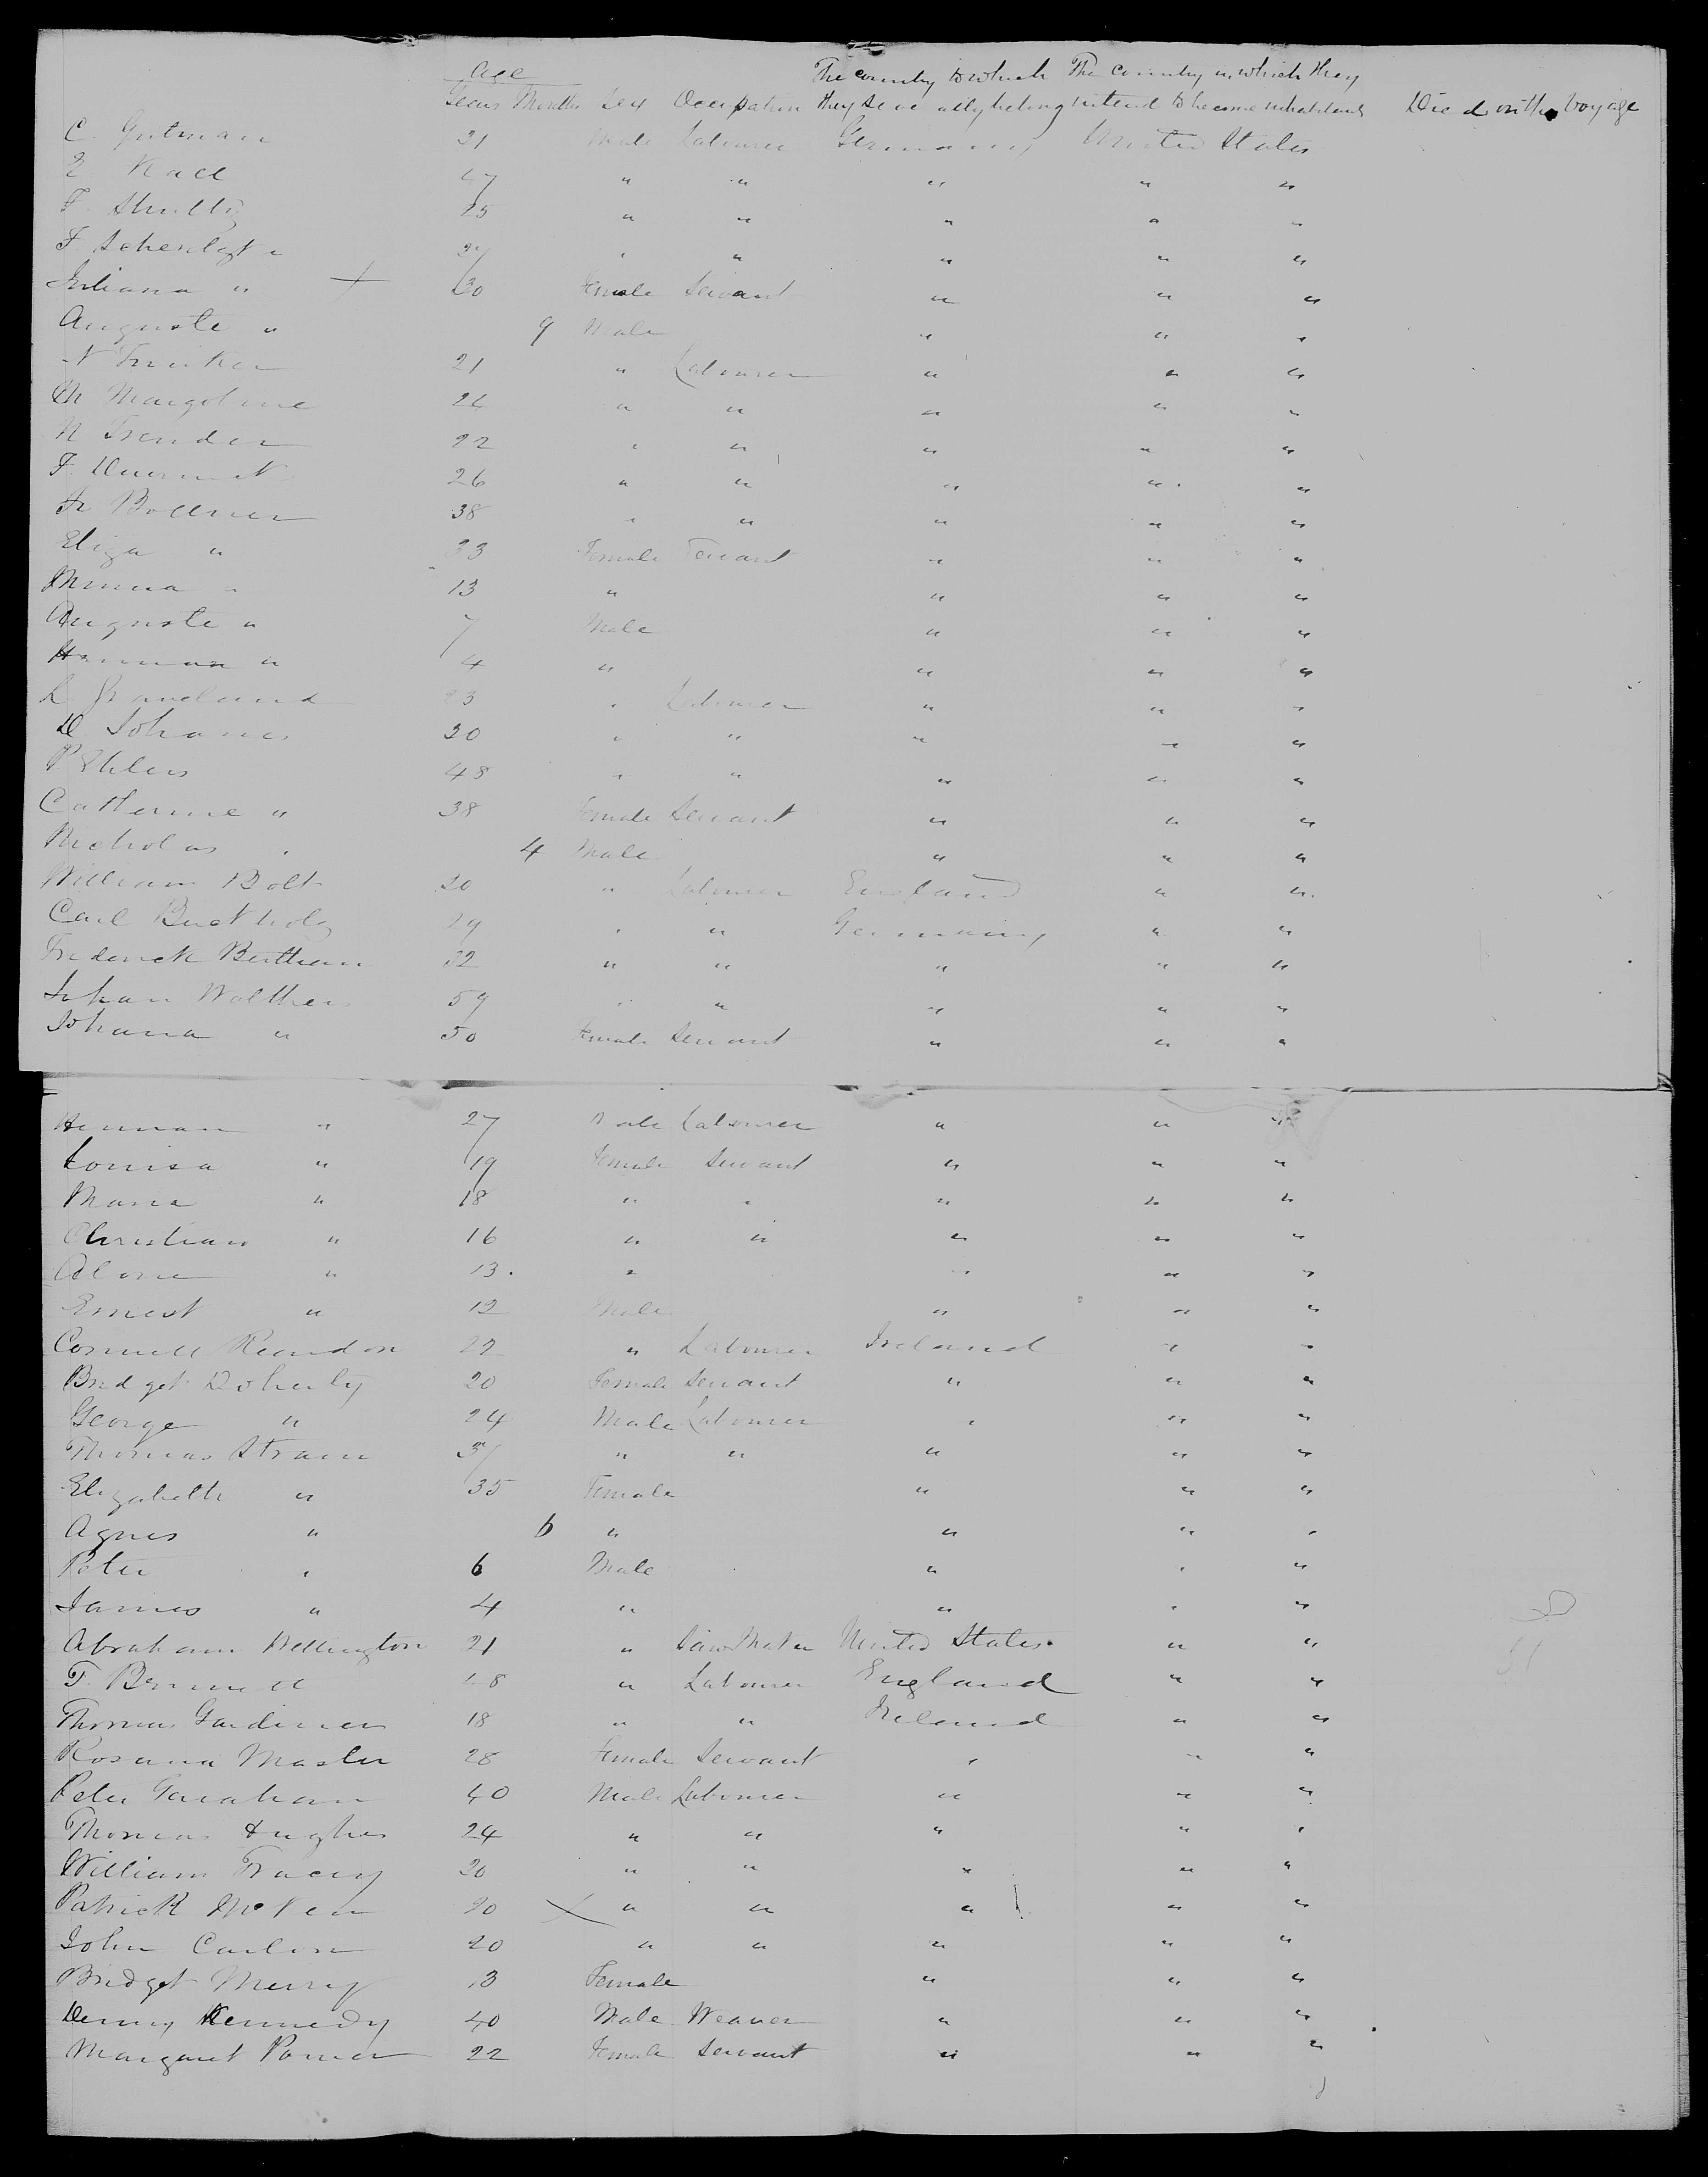 Age The country to which The country in which they
Years Months Sex Occupation they severally belong intend to become inhabitants Died on the Voyage
C. Gutman 21 Male Labourer Germany United States
47 " " " " "
F. Shultz 25 " " " " "
F. " " " " "
Juliana " 30 Female Servant " " "
Auguste " 9 Male " " "
N 21 " Labourer " " "
" " " " "
N 22 " " " " "
F. 26 " " " " "
Fr Bollner 38 " " " " "
Eliza " 33 Female Servant " " "
Minna " 13 " " " "
Auguste " 7 Male " " "
Herman " 4 " " " "
L. 23 " Labourer " " "
D. Johannes 30 " " " " "
P Ehlers 48 " " " " "
Catherine " 38 Female Servant " " "
Nicholas " 4 Male " " "
William Bolt 20 " Labourer England " "
Carl Buckholz 29 " " Germany " "
Frederick 32 " " " " "
Johan Walther 59 " " " " "
Johana " 50 Female Servant " " "
Herman " 27 Male Labourer " " "
Louisa " 19 Female Servant " " "
Maria " 18 " " " " "
Christian " 16 " " " " "
" 13 " " " "
Ernest " 12 Male " " "
Connell Reardon 22 " Labourer Ireland " "
Bridget Doherty 20 Female Servant " " "
George " 24 Male Labourer " " "
Thomas Strain 37 " " " " "
Elizabeth " 35 Female " " "
Agnes " 6 " " " "
Peter " 6 Male " " "
James " 4 " " " "
Abraham Wellington 21 " United States " "
T. 48 " Labourer England " "
Thomas Gardiner 18 " " Ireland " "
Rosanna Master 28 Female Servant " " "
Peter 40 Male Labourer " " "
Thomas Hughes 24 " " " " "
William Tracey 20 " " " " "
Patrick 20 " " " " "
John Carlin 20 " " " " "
Bridget Merry 13 Female " " "
Kennedy 40 Male Weaver " " "
Margaret Power 22 Female Servant " " "